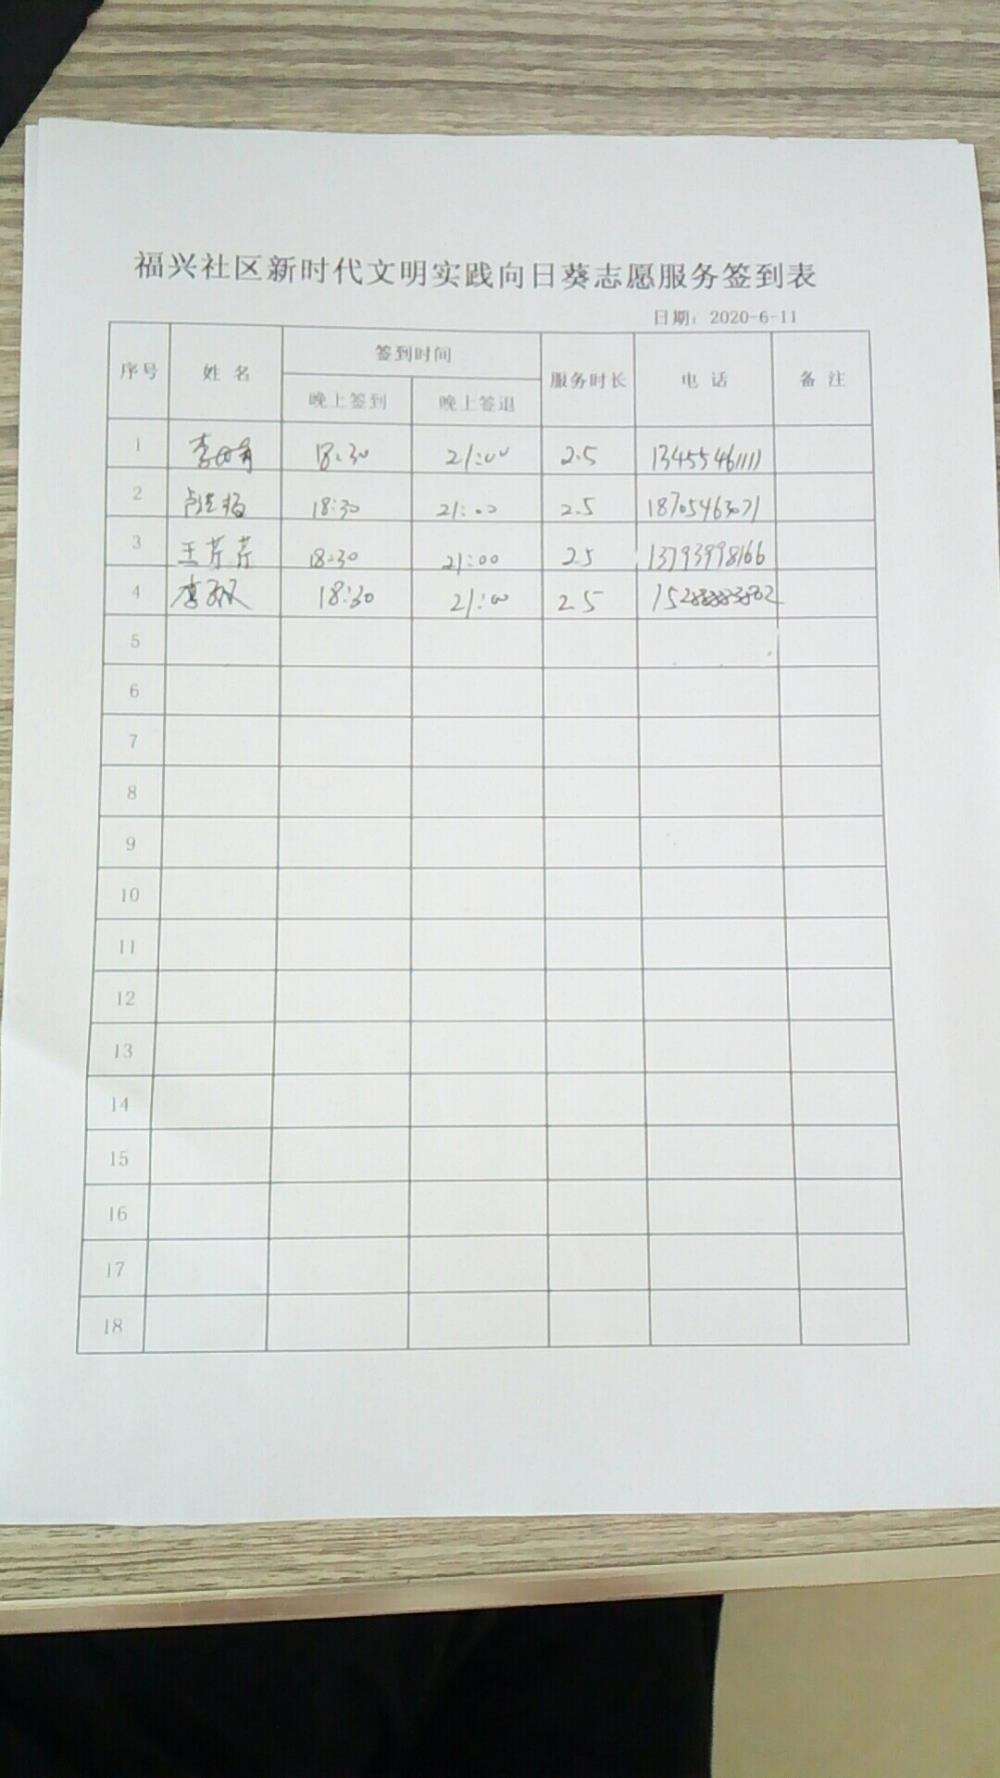 福兴社区新时代文明实践向日葵志愿服务签到表
日期：2020-6-11
序号 姓 名 签到时间 服务时长 电 话 备 注
晚上签到 晚上签退
1 18:30 21:00 2.5 13455461111
2 18:30 21:00 2.5 18705463071
3 王芹芹 18:30 21:00 2.5 13793998166
4 18:30 21:00 2.5
5
6
7
8
9
10
11
12
13
14
15
16
17
18